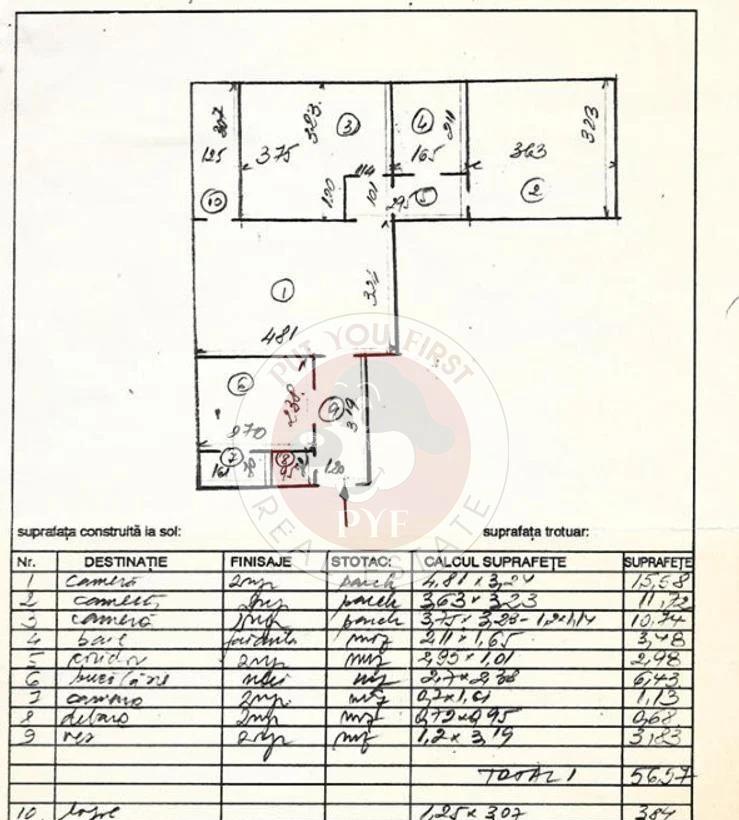 307 323. 3 4 211 323
125 375 165 363
10 120 114 101 295 5 2
1 321
481
6 238. 9 319
270
7 8
161 95 120
PUT YOU FIRST
PYF
REAL ESTATE
suprafața construită la sol: suprafața trotuar:
Nr. DESTINAȚIE FINISAJE STOTAC: CALCUL SUPRAFEȚE SUPRAFEȚE
1 Cameră zugr parch 4,81 x 3,24 15,58
2 cameră zugr parch 3,63 x 3,23 11,72
3 cameră zugr parch 3,75 x 3,23 - 1,2x1,14 10,74
4 baie faianta moz 2,11 x 1,65 3,48
5 coridor zugr moz 2,95 x 1,01 2,98
6 moz 2,7 x 2,38 6,43
7 camara zugr moz 0,7 x 1,61 1,13
8 debara zugr moz 0,72 x 0,95 0,68
9 zugr moz 1,2 x 3,19 3,83
TOTAL 1 56,57
10 1,25 x 3,07 3,84